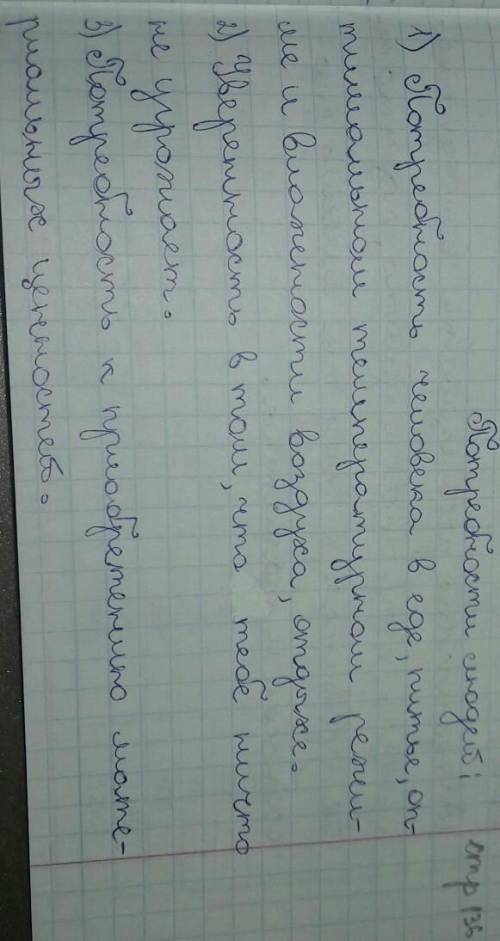 Потребности людей: стр 136
1) Потребность человека в еде, питье, оп-
тимальном температурном режи-
ме и влажности воздуха, отдыхе.
2) Уверенность в том, что тебе ничто
не угрожает.
3) Потребность к приобретению мате-
риальных ценностей.